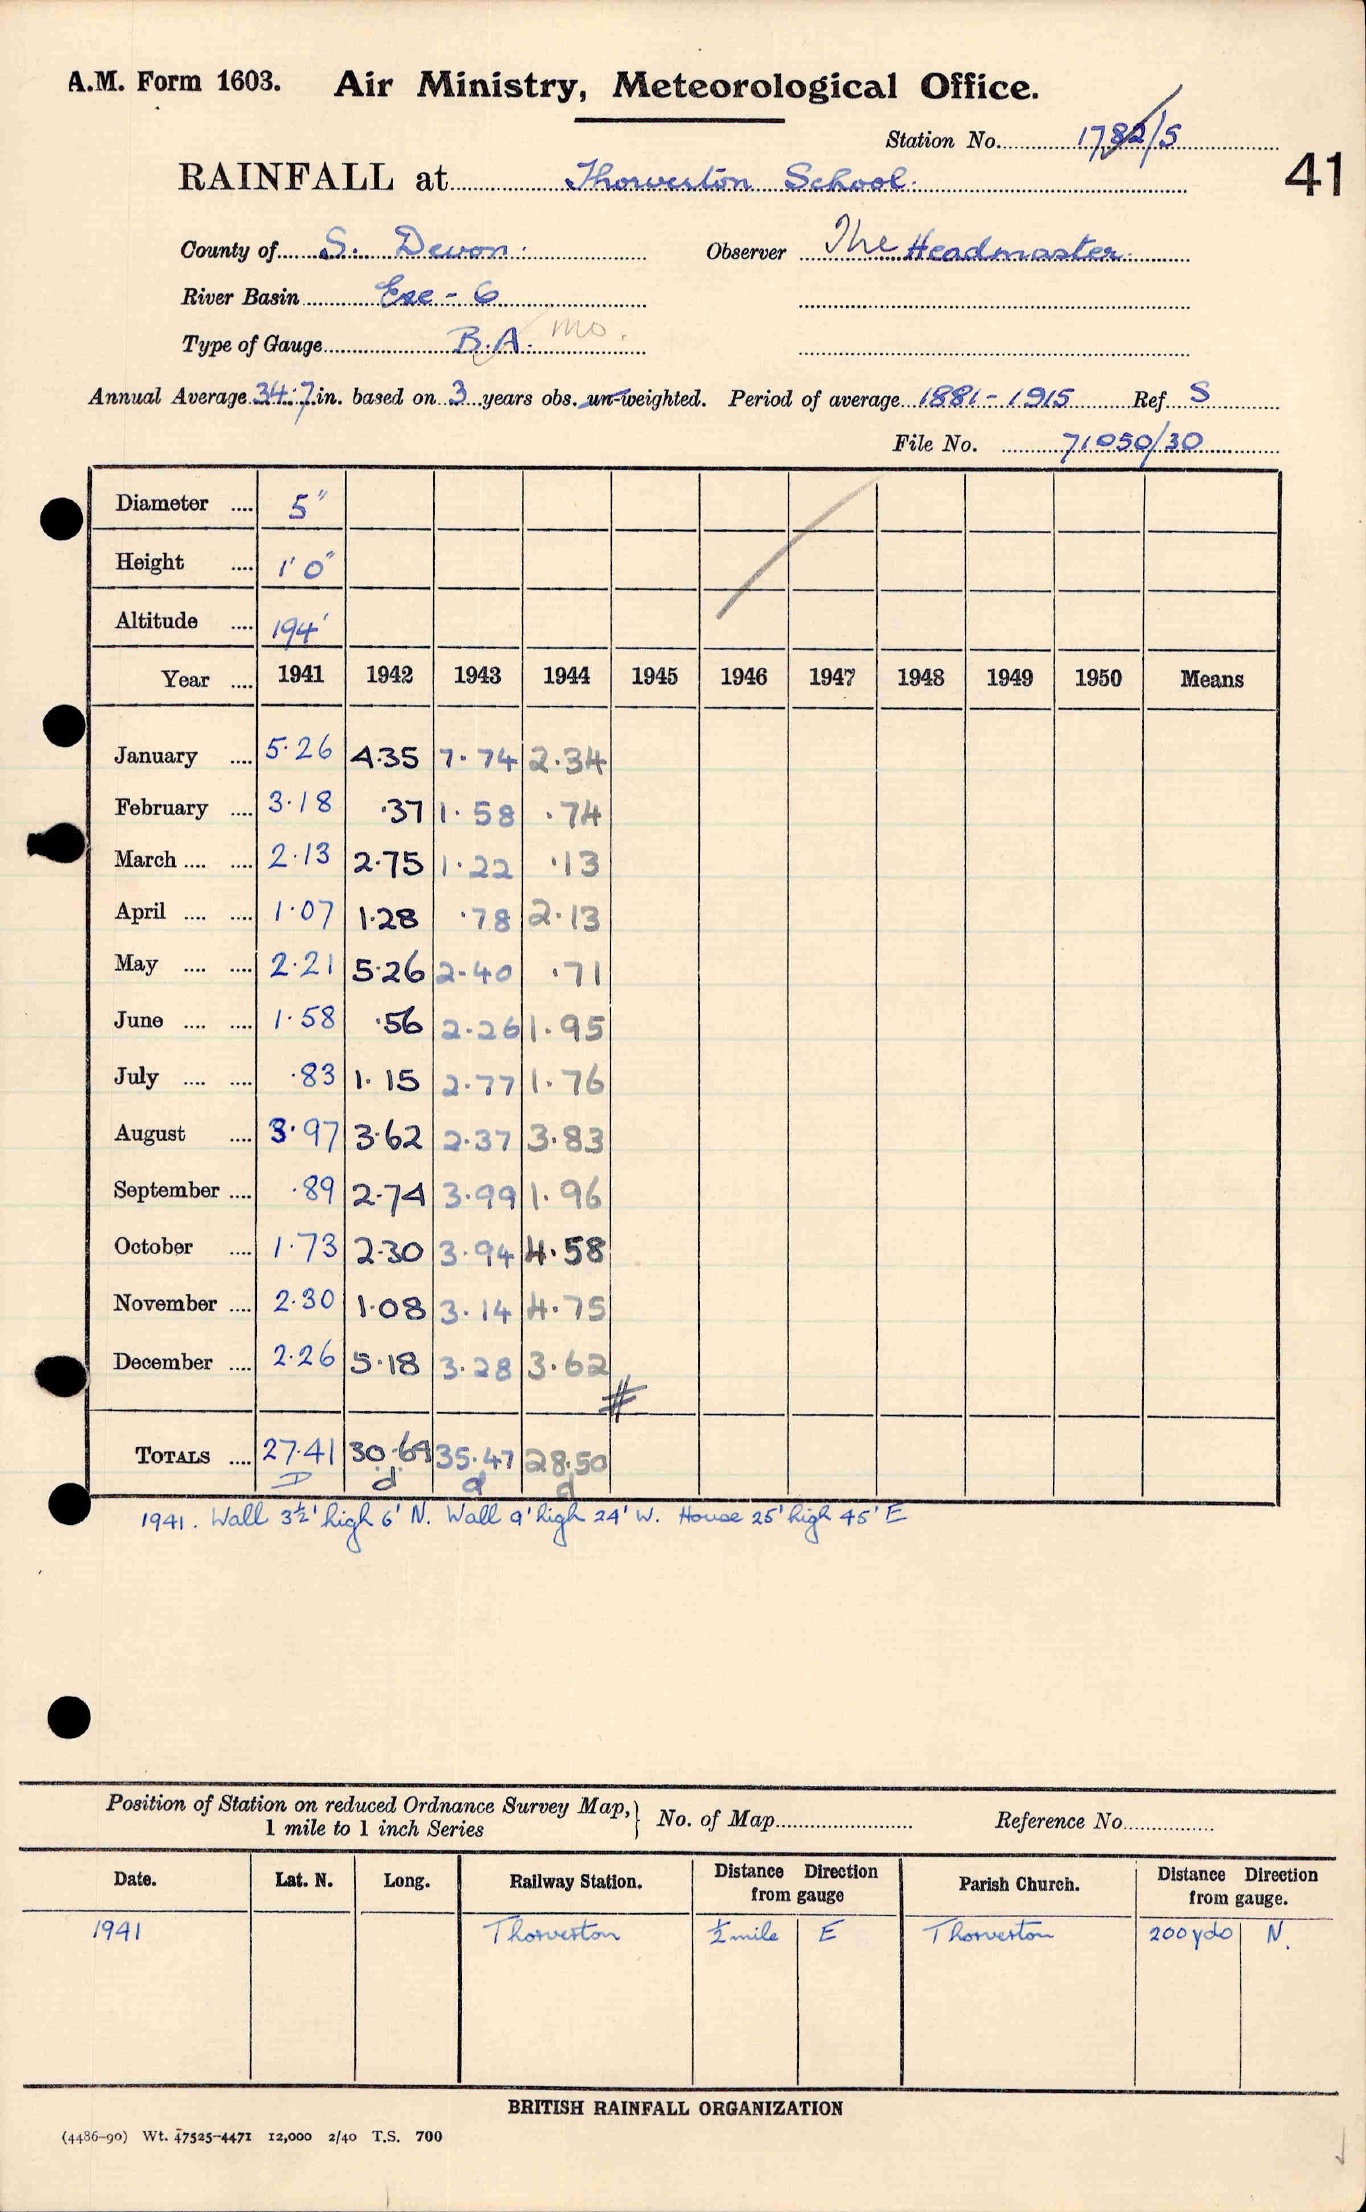 A.M. Form 1603. Air Ministry, Meteorological Office.
Station No. 1782/5
41
RAINFALL at Thorverton School.
County of S. Devon. Observer The Headmaster.
River Basin Exe - 6
Type of Gauge B.A. mo.
Annual Average 34.7 in. based on 3 years obs. un-weighted. Period of average 1881 - 1915 Ref S
File No. 71050/30
Diameter .... 5"
Height .... 1' 0"
Altitude .... 194'
Year .... 1941 1942 1943 1944 1945 1946 1947 1948 1949 1950 Means
January .... 5.26 4.35 7.74 2.34
February .... 3.18 .37 1.58 .74
March .... .... 2.13 2.75 1.22 .13
April .... .... 1.07 1.28 .78 2.13
May .... .... 2.21 5.26 2.40 .71
June .... .... 1.58 .56 2.26 1.95
July .... .... .83 1.15 2.77 1.76
August .... 3.97 3.62 2.37 3.83
September .... .89 2.74 3.99 1.96
October .... 1.73 2.30 3.94 4.58
November .... 2.30 1.08 3.14 4.75
December .... 2.26 5.18 3.28 3.62
#
TOTALS .... 27.41 30.64 35.47 28.50
D d d d
1941. Wall 3½' high 6' N. Wall 9' high 24' W. House 25' high 45' E
Position of Station on reduced Ordnance Survey Map,} No. of Map Reference No.
1 mile to 1 inch Series
Date. Lat. N. Long. Railway Station. Distance Direction from gauge Parish Church. Distance Direction from gauge.
1941 Thorverton ½ mile E Thorverton 200 yds N.
BRITISH RAINFALL ORGANIZATION
(4486-90) Wt. 47525-4471 12,000 2/40 T.S. 700